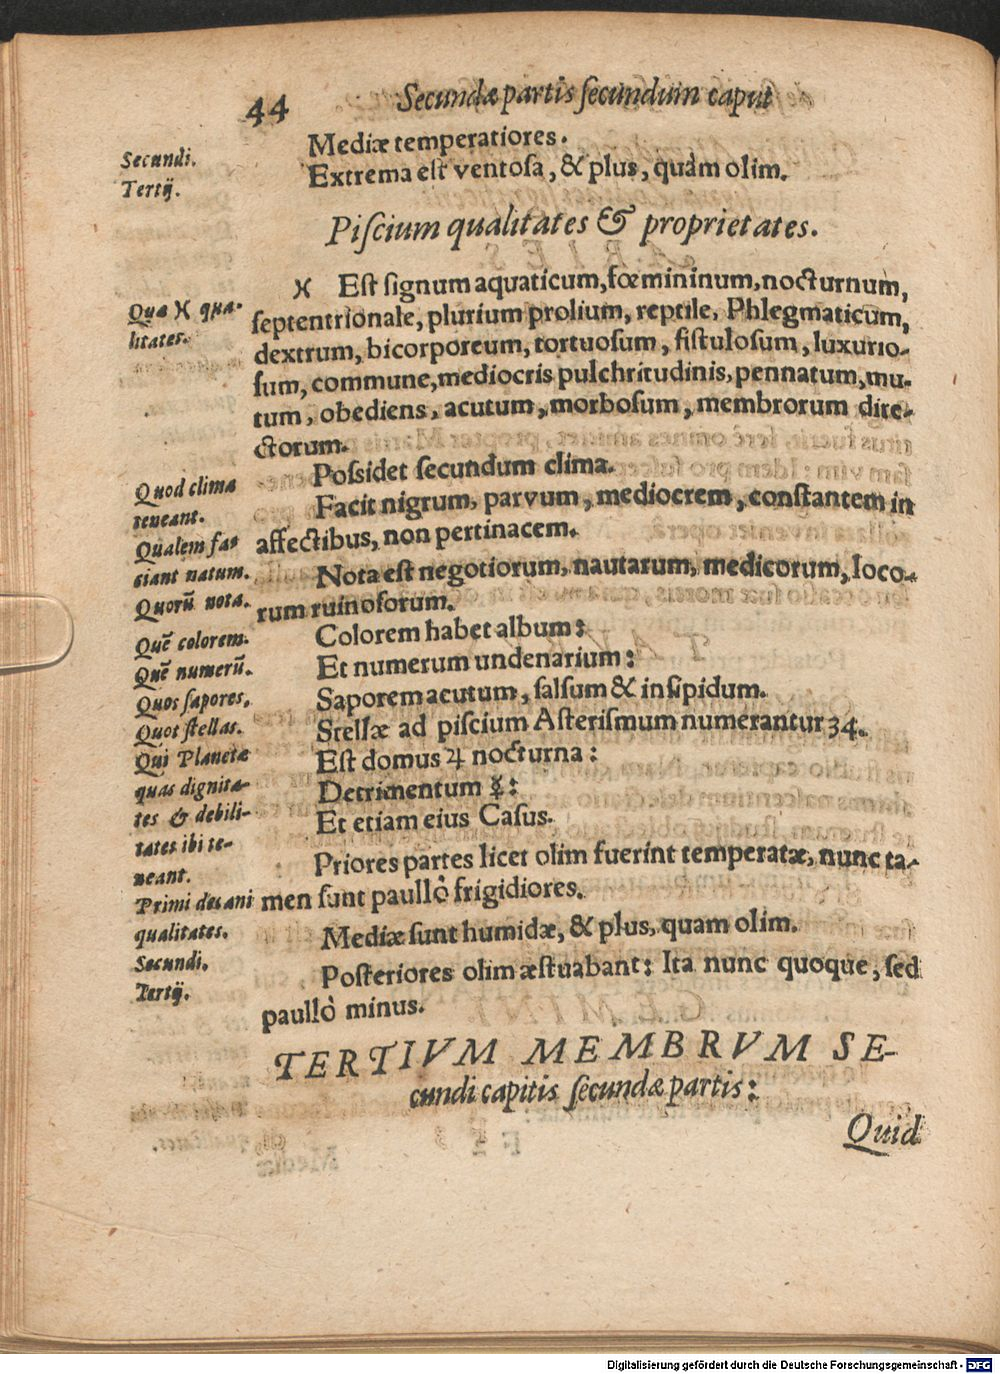 44 Secundæ partis secundum caput
Secundi. Mediæ temperatiores.
Tertij. Extrema est ventosa, & plus, quàm olim.
Piscium qualitates & proprietates.
♓ Est signum aquaticum, fœmininum, nocturnum,
Quæ ♓ qua-
litates. septentrionale, plurium prolium, reptile, Phlegmaticum,
dextrum, bicorporeum, tortuosum, fistulosum, luxurio-
sum, commune, mediocris pulchritudinis, pennatum, mu-
tum, obediens, acutum, morbosum, membrorum dire-
ctorum.
Quod clima
teneant. Possidet secundum clima.
Qualem fa-
ciant natum. Facit nigrum, parvum, mediocrem, constantem in
affectibus, non pertinacem.
Quorũ nota. Nota est negotiorum, nautarum, medicorum, loco-
rum ruinosorum.
Quẽ colorem. Colorem habet album:
Quẽ numerũ. Et numerum undenarium:
Quos sapores. Saporem acutum, salsum & insipidum.
Quot stellas. Stellæ ad piscium Asterismum numerantur 34.
Qui Planetæ
quas dignita-
tes & debili-
tates ibi te-
neant. Est domus ♃ nocturna:
Detrimentum ☿:
Et etiam eius Casus.
Primi decani
qualitates. Priores partes licet olim fuerint temperatæ, nunc ta-
men sunt paullò frigidiores.
Secundi. Mediæ sunt humidæ, & plus, quam olim.
Tertij. Posteriores olim æstuabant: Ita nunc quoque, sed
paullò minus.
TERTIVM MEMBRVM SE-
cundi capitis secundæ partis:
Quid
Digitalisierung gefördert durch die Deutsche Forschungsgemeinschaft - DFG